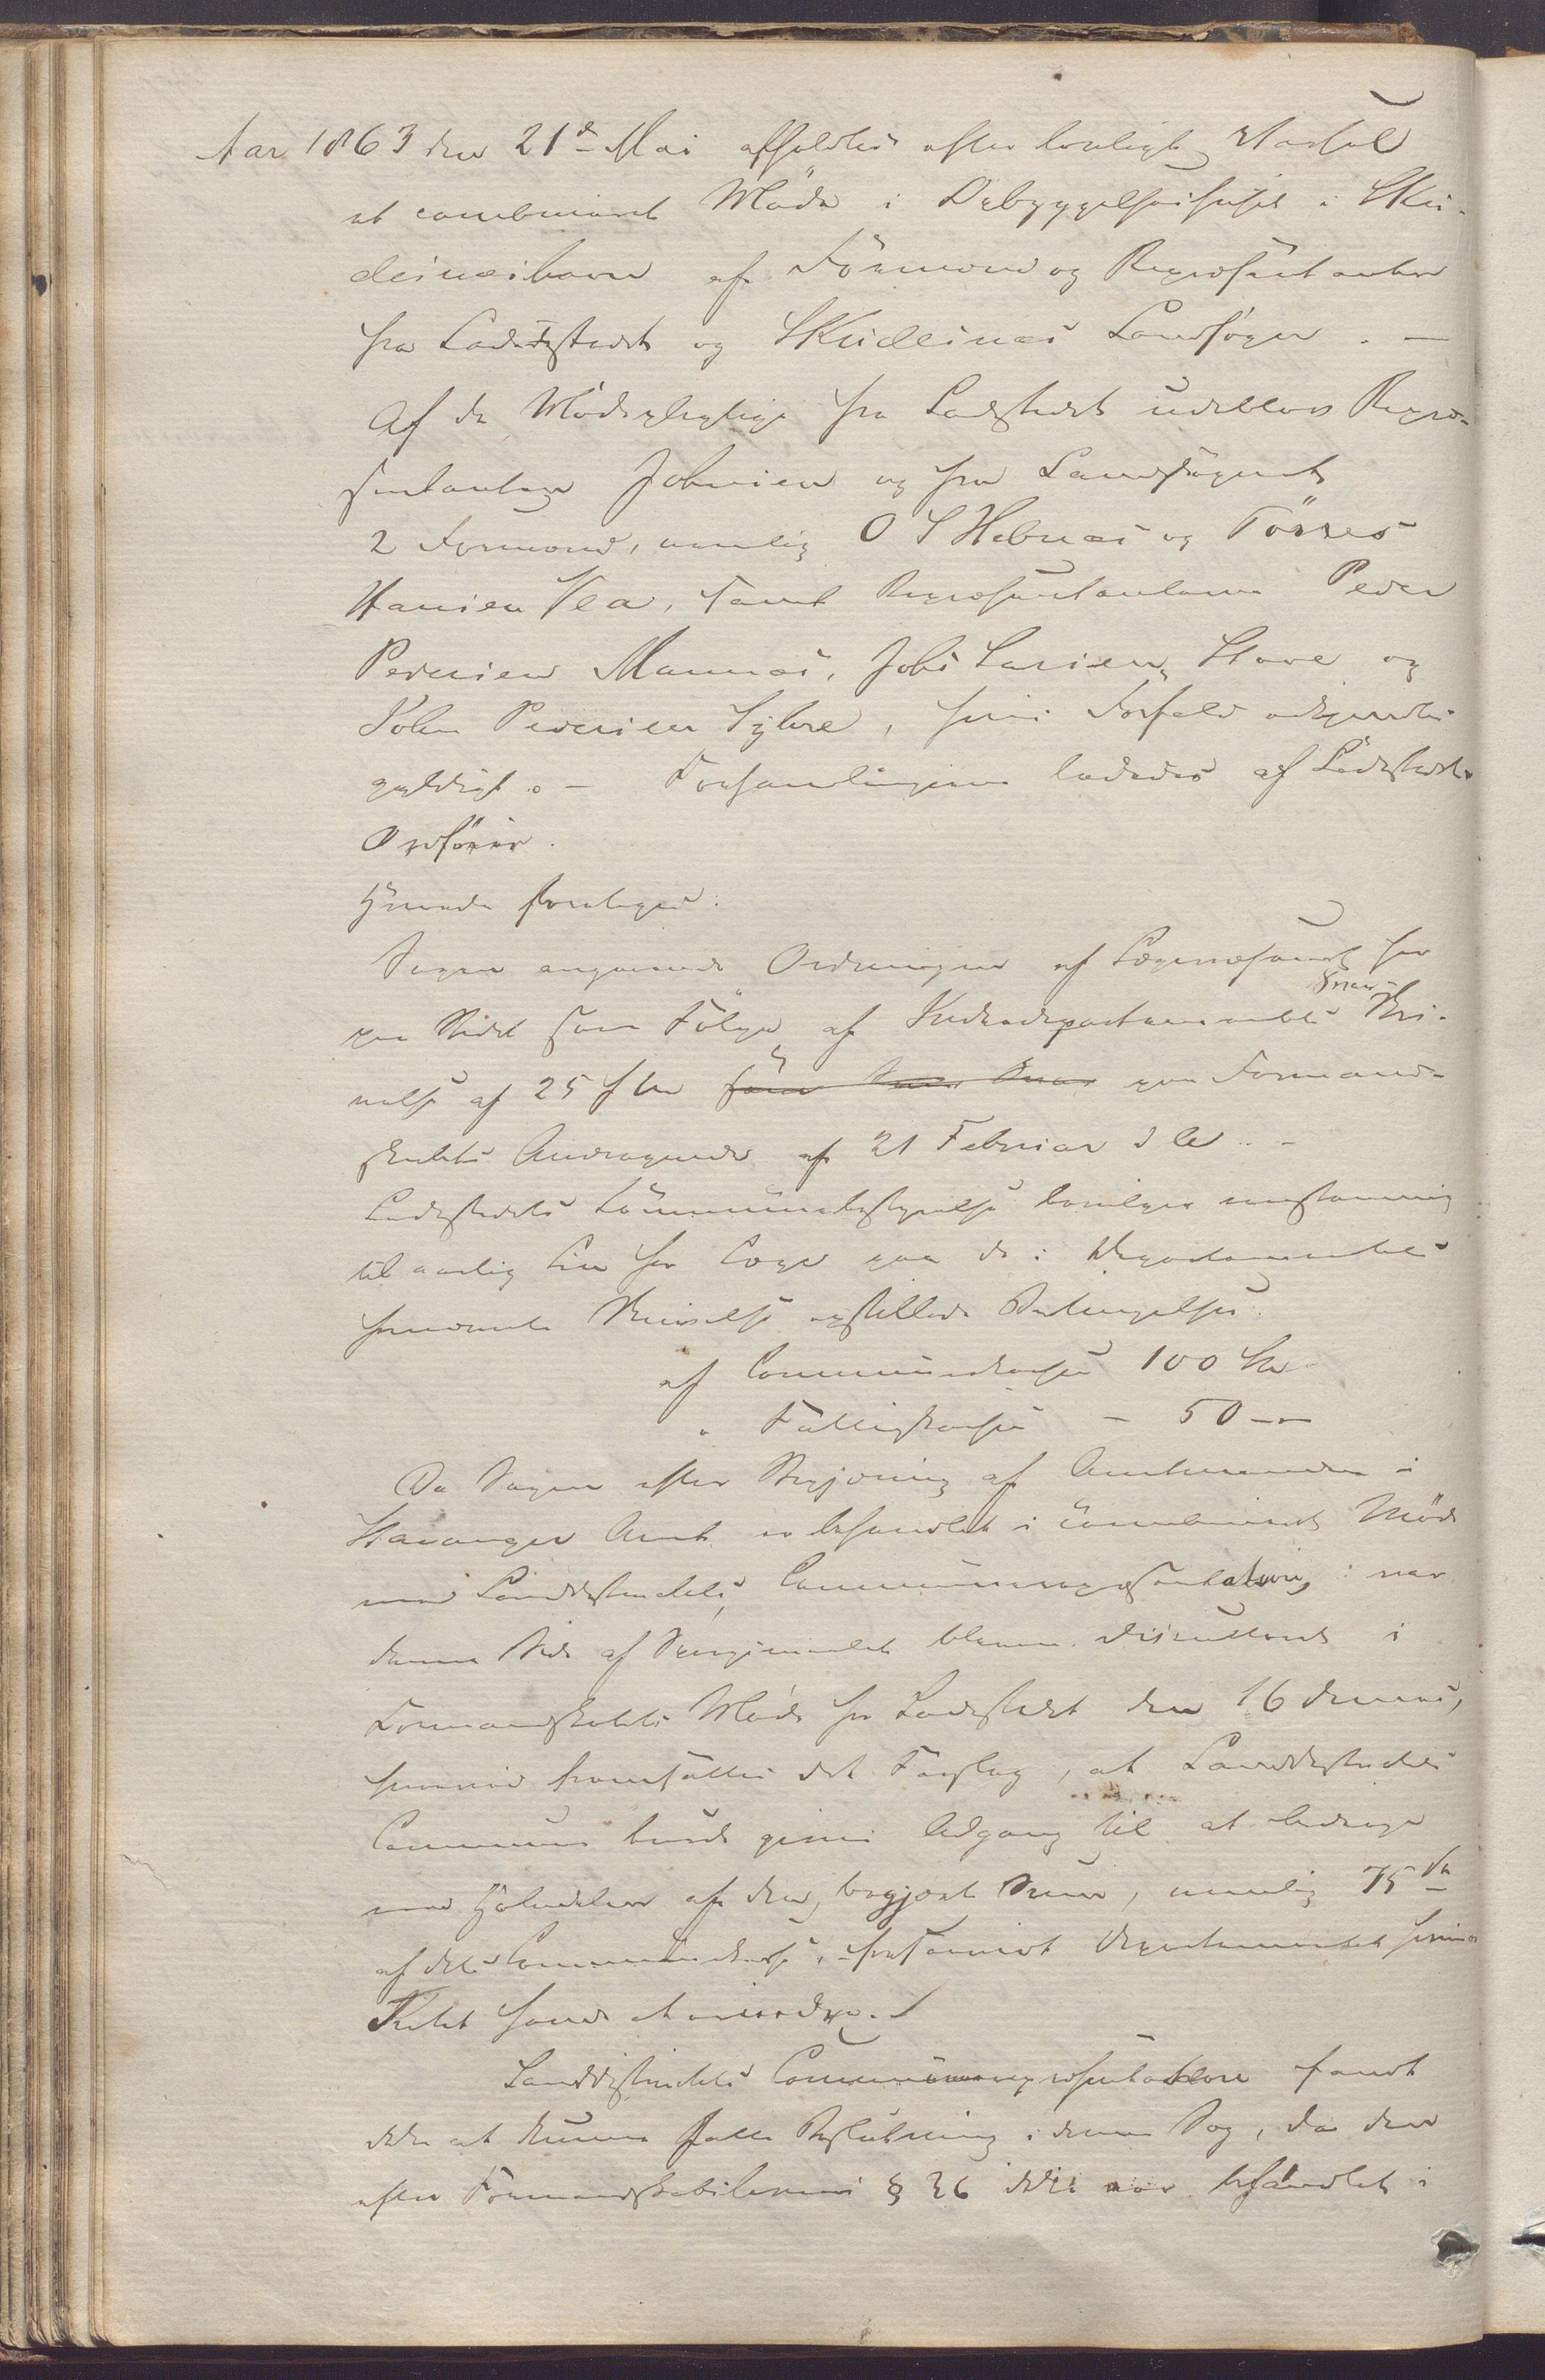 Aar 1863 den 21de Mai afholdtes efter lovligt Varsel
et combineret Möde i Bebyggelseshuset i Sku-
desneshavn af Formænd og Repræsentanter
fra Ladestedet og Skudesnes Landsogn. —
Af de Mödepligtige fra Ladestedet udeblev Repræ-
sentanten Johnsen og fra Landsognet
2 Formænd, nemlig O S Hebnes og Törres
Hansen Vea, samt Repræsentanterne Peder
Pedersen Mannes, Johs Larsen Stave og
John Pedersen Syhre, hvis Forfald ansaaes
gyldigt. — Forsamlingerne lededes af Ladestedets
Ordförer.
Hvorda foretoges:
Sagen angaaende Ordningen af Lægevæsenet her
paa Stedet som Fölge af Indredepartementets Skri-
velse af 25 f M paa Formand-
skabets Andragende af 21 Februar d A. —
Ladestedets Communebestyrelse bevilger eenstemmig
til aarlig Lön for Læge paa de i Departementets
fornævnte Skrivelse opstillede Betingelser
af Communekassen 100 Spd
" Fattigkassen — 50 —
Da Sagen efter Begjæring af Amtmanden i
Stavanger Amt er behandlet i combineret Möde
med Landdistrictets Communerepræsentation, var
denne Side af Spörgsmaalet bleven discutteret i
Formandskabets Möde for Ladestedet den 16 dennes,
hvorved fremsattes det Forslag, at Landdistrictets
Commune burde gives Adgang til at bidrage
med Halvdelen af den begjærte Sum, nemlig 75 Spd
af dets Communekasse, forsaavidt Departementet herimod
Intet havde at erindre. /
Landdistrictets Communerepræsentation fandt
ikke at kunne fatte Beslutning i denne Sag, da den
efter Formandskabslovens § 26 ikke var behandlet i